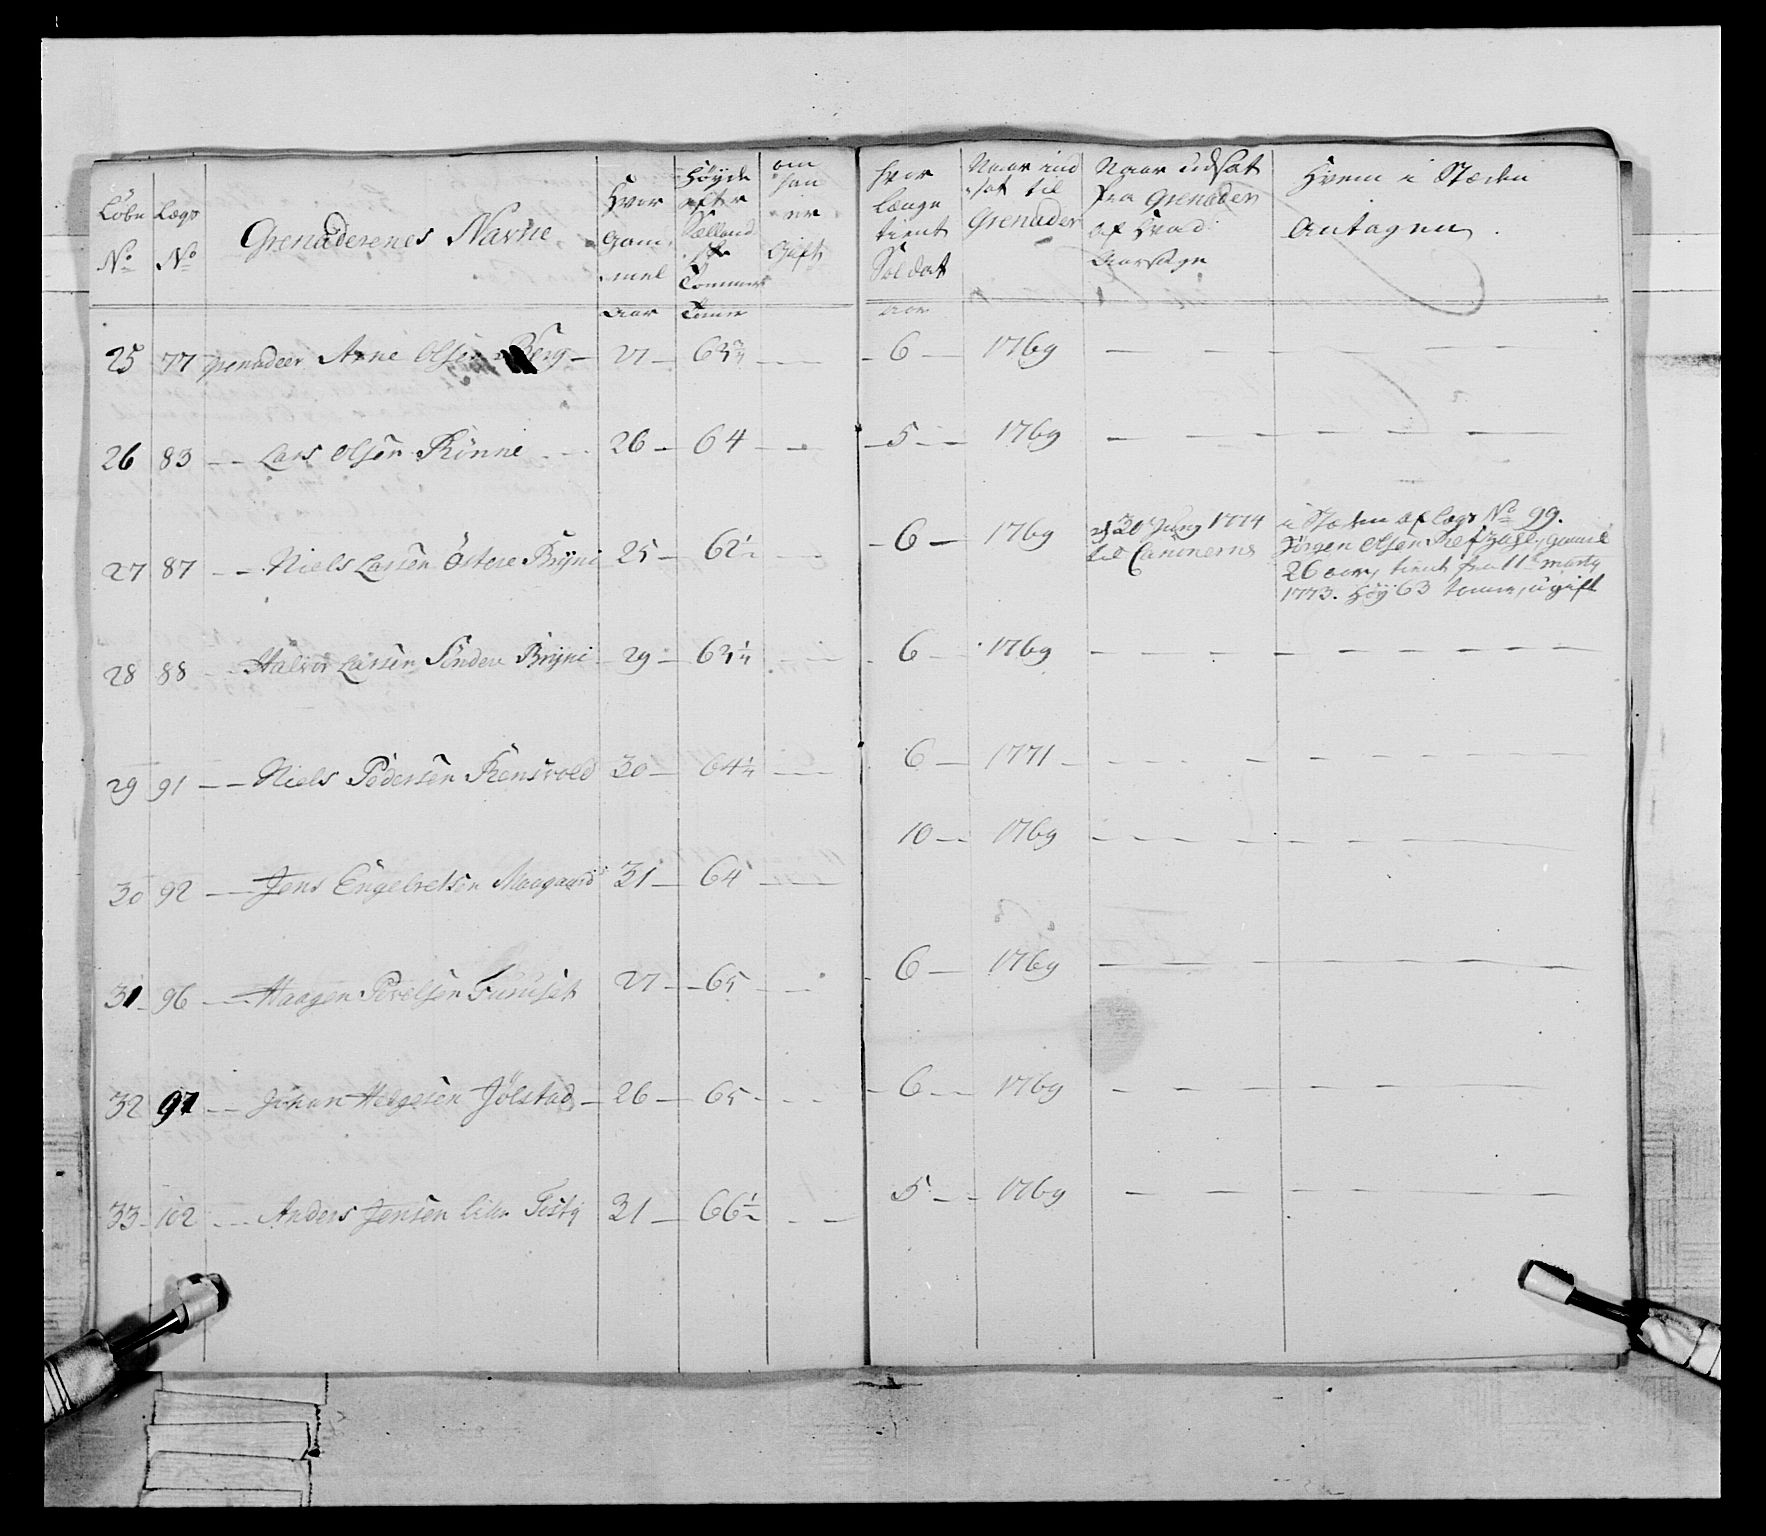 Löbe Lægs Grenaderenes Navne Hvor Gam mel Höyde efter Sælland ske Tommer om han er Gift hvor længe tient Soldat Naar ind sat til Grenader Naar udsat fra Grenader af Hvad Aarsage Hvem i Stæden Antagen.
No No
Aar Tomer aar
25 77 Grenadeer Arne Olsen Berg 27 63 3/4 6 1769
26 83 Lars Olsen Rönne 26 64 5 1769
27 87 Niels Larsen Östere Bryni 25 62 1/2 6 1769 d 30 Juny 1774 til Canonerne
i Stæden af lægs No 99.
Jörgen Olsen gamel
26 aar, tient fra 11 marty
1773. höy 63 tomer, ugift
28 88 Halvor Larsen Söndere Bryni 29 63 1/4 6 1769
29 91 Niels Pedersen Rensvold 30 64 1/4 6 1771
30 92 Jens Engebretsen Maagaard 31 64 10 1769
31 96 Haagen Povelsen Furuset 27 65 6 1769
32 97 Johan Helgesen Jölstad 26 65 6 1769
33 102 Anders Jensen Lille Festy 31 66 1/2 5 1769